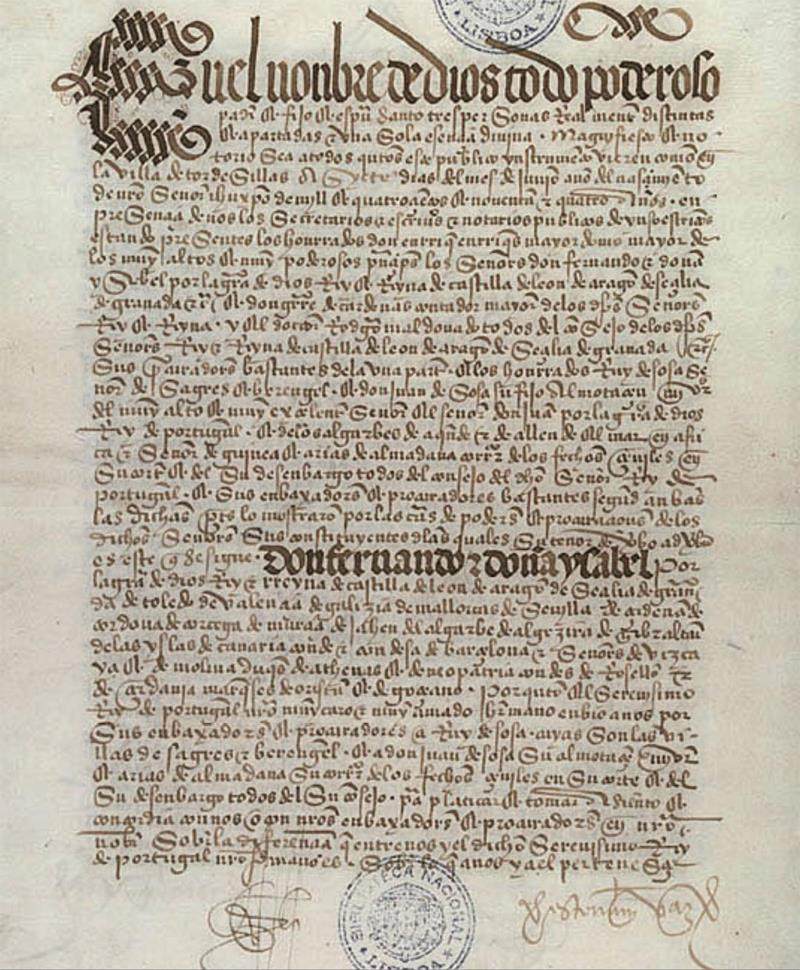 LISBOA
En el nonbre de dios todo poderoso
padre & fijo & espu santo tres personas Real mente distintas
& apartadas & vna Sola esencia diuina. Magnifiesto & no
torio Sea a todos quantos este publico ynstrumento vieren como en
la villa de tordesillas a Syete dias del mes de junio año del nasçimiento
de nro Señor ihu xpo de mill & quatroçientos & nouenta & quatro años. en
presençia de nos los Secretarios & escriuanos & notarios publicos de yuso escriptos
estando presentes los honrrados don enrrique enrriques mayordomo mayor de
los muy altos & muy poderosos prinçipes los Señores don fernando & doña
ysabel por la graçia de dios Rey & Reyna de castilla de leon de aragon de seçilia
de granada & & don gutierre de cardenas contador mayor de los dichos Señores
Rey & Reyna. y el doctor Rodrigo maldonado todos del consejo de los dichos
Señores Rey & Reyna de castilla de leon de aragon de Seçilia de granada
Sus procuradores bastantes de la vna parte. & los honrrados Ruy de sosa Se
nor de Sagres & berengel. & don juan de Sosa su fijo Almotaçen mayor
del muy alto & muy exçelente Señor el señor don juan por la graçia de dios
Rey de portugal. & de los algarbes de aquende & de allende el mar en afri
ca & Señor de guinea & arias de almadana corregidor de los fechos çeuiles en
Su corte & del Su desenbargo todos del consejo del dicho Señor Rey de
portugal. & Sus enbaxadores & procuradores bastantes segund anbas
las dichas partes lo mostraron por las cartas de poderes & procuraçiones de los
dichos Señores Sus constituyentes de las quales Su tenor de verbo ad verbo
es este que se sigue. don fernando & doña ysabel por
la graçia de dios Rey & rreyna de castilla de leon de aragon de Seçilia de grana
da de toledo de valençia de galizia de mallorcas de Seuylla de çerdeña de
cordoua de corçega de murçia de jahen del algarbe de algezira de gibraltar
de las yslas de canaria conde & condesa de barçelona & Señores de vizca
ya & de molina duques de athenas & de neopatria condes de Rosellon &
de çerdania marqueses de oristan & de goçiano. por quanto el Serenisimo
Rey de portugal nro muy caro & muy amado hermano enbio a nos por
Sus enbaxadores & procuradores a Ruy de sosa. cuyas Son las vi-
llas de sagres & berengel. & a don juan de sosa Su almotaçen mayor
& arias de almadana Su corregidor de los fechos çeuiles en Su corte & del
Su desenbargo todos del Su consejo. para platicar & tomar asiento &
concordia con nos o con nros enbaxadores & procuradores en nro
nonbre Sobre la diferençia que entre nos y el dicho Serenisimo Rey
de portugal nro hermano es. Sobre lo que a nos y a el perteneSçe
BIBLIOTECA NACIONAL
LISBOA